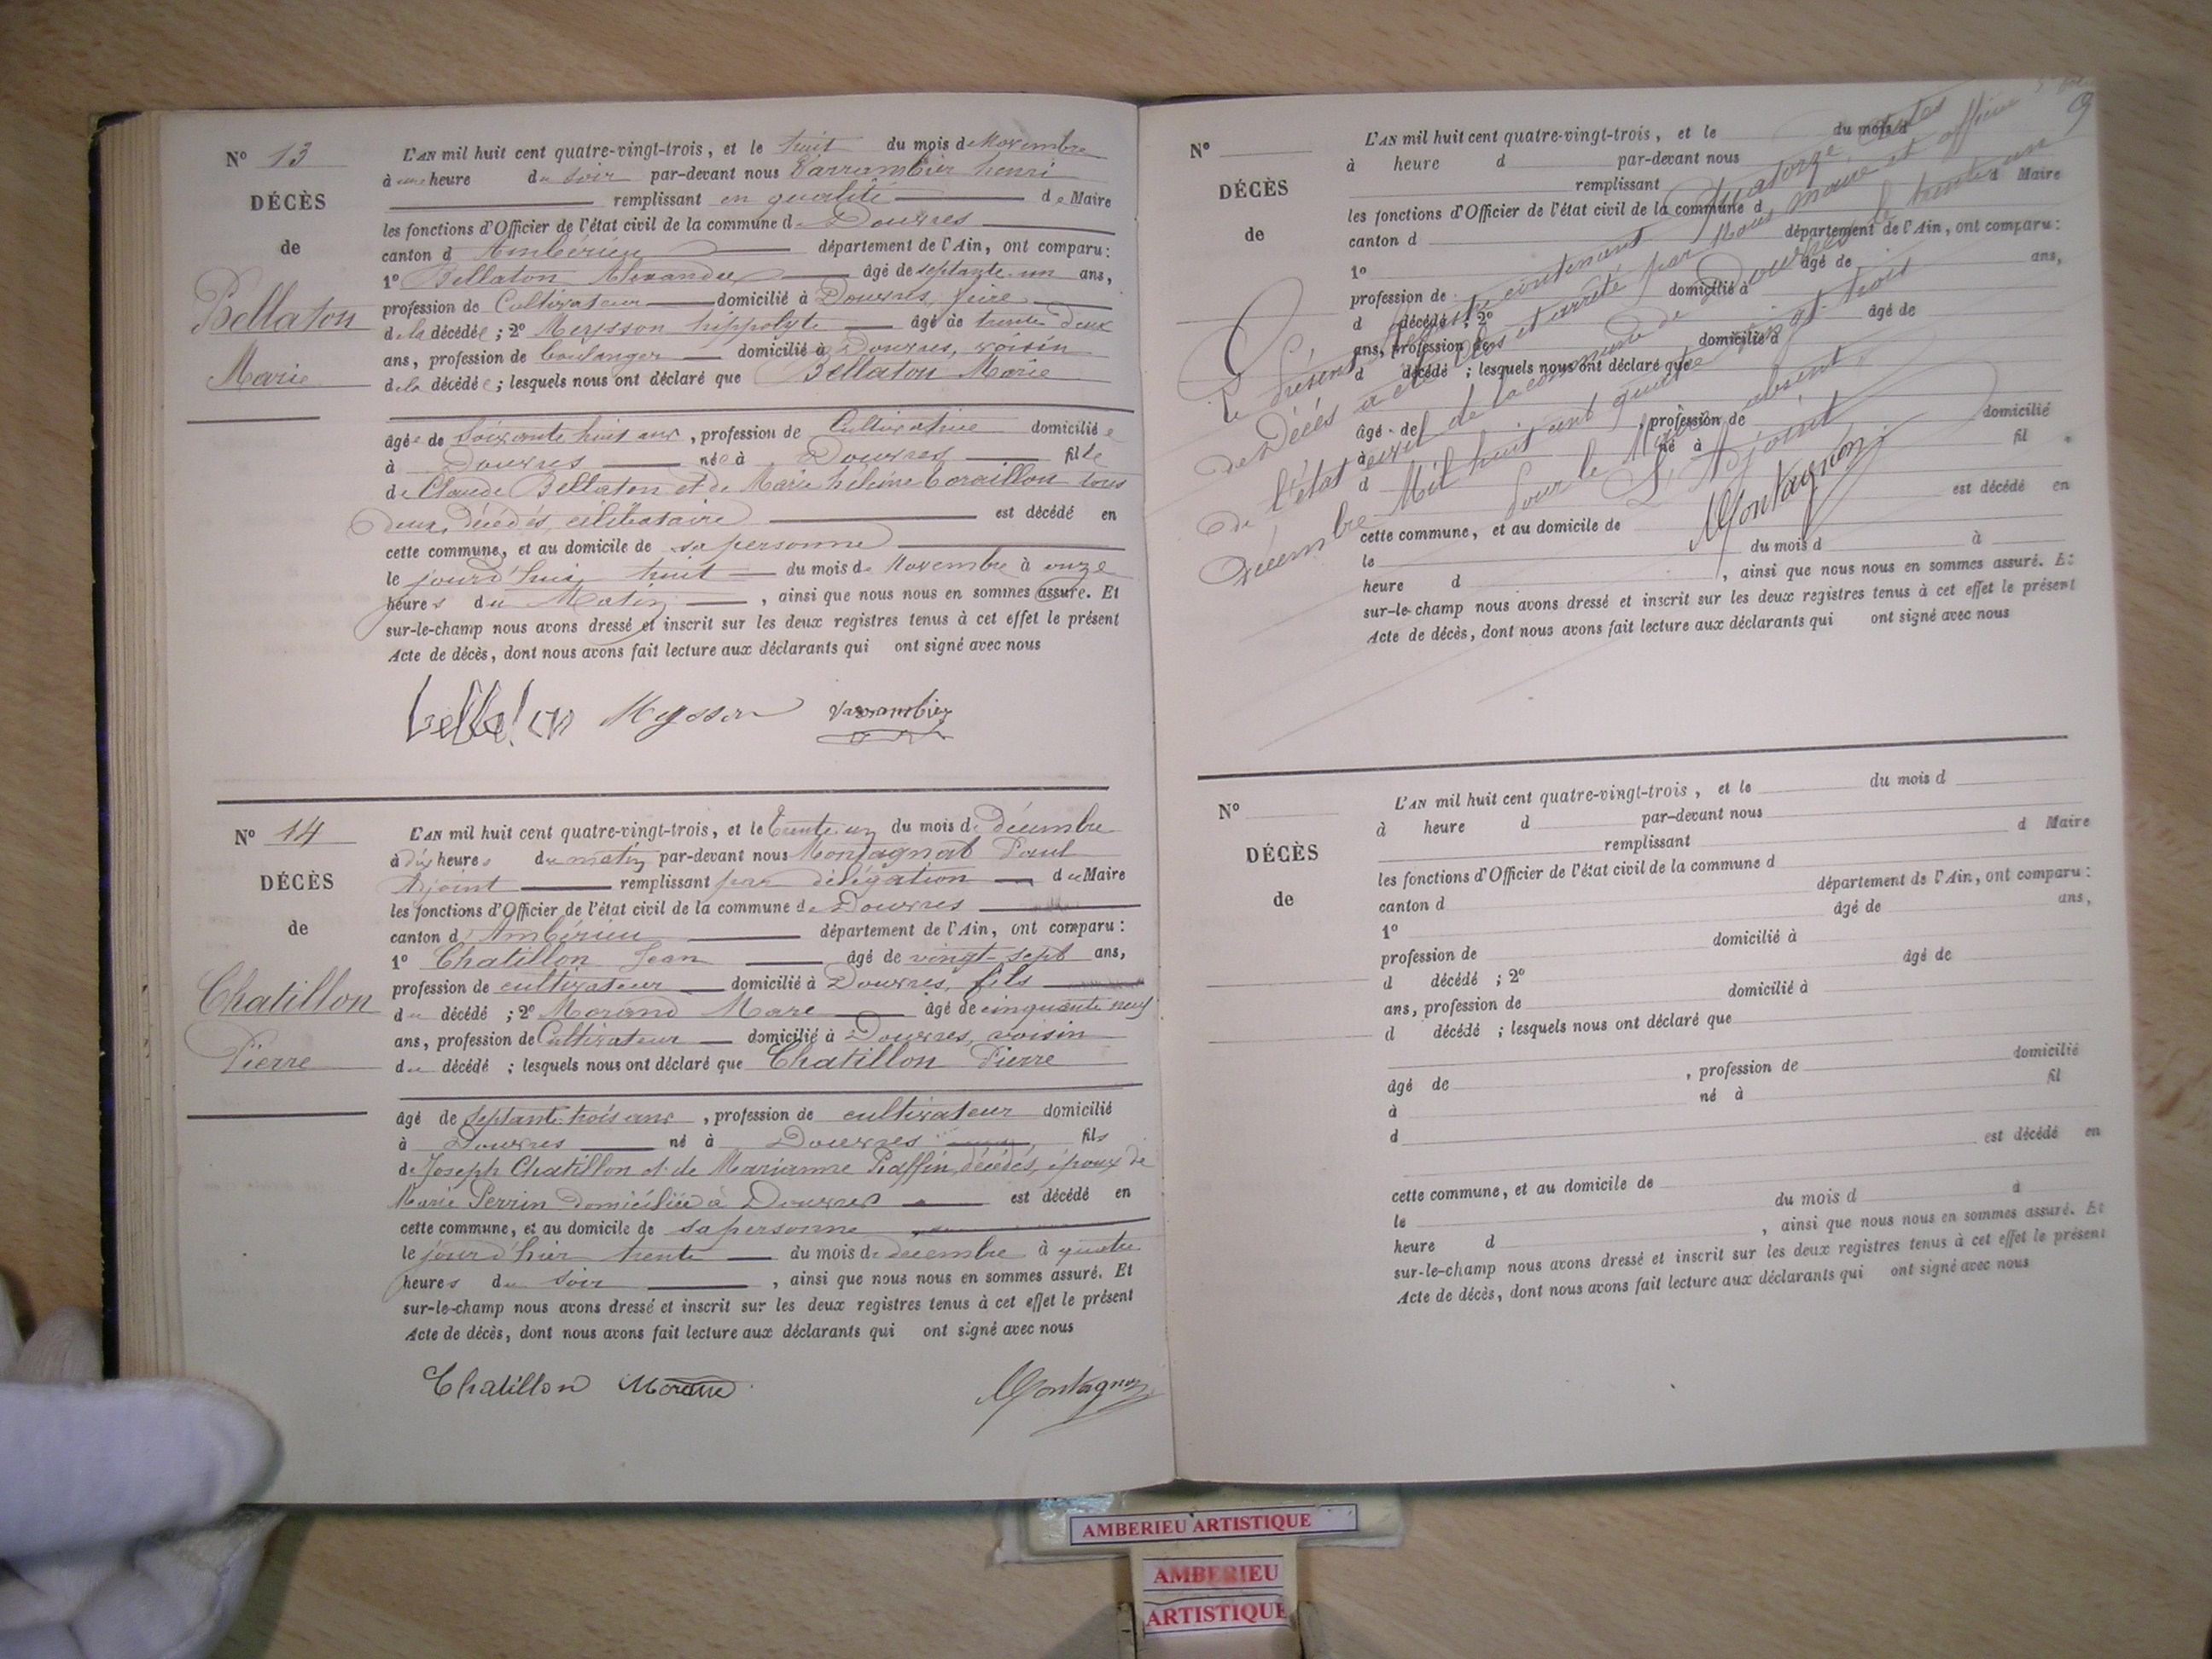 N° 13
DÉCÈS
de
Bellaton
Marie
L'AN mil huit cent quatre-vingt-trois, et le huit du mois de Novembre
à une heure du soir par-devant nous Varrambier henri
remplissant en qualité de Maire
les fonctions d'Officier de l'état civil de la commune de Douvres
canton d'Ambérieu département de l'Ain, ont comparu :
1° Bellaton Alexandre âgé de septante-un ans,
profession de Cultivateur domicilié à Douvres, frère
de la décédée ; 2° Meysson hippolyte âgé de trente deux
ans, profession de boulanger domicilié à Douvres, voisin
de la décédée ; lesquels nous ont déclaré que Bellaton Marie
âgée de soixante huit ans, profession de Cultivatrice domiciliée
à Douvres née à Douvres fille
de Claude Bellaton et de Marie hélène Coraillon tous
deux décédés, célibataire est décédé en
cette commune, et au domicile de sa personne
le jourd'hui huit du mois de Novembre à onze
heures du Matin, ainsi que nous nous en sommes assuré. Et
sur-le-champ nous avons dressé et inscrit sur les deux registres tenus à cet effet le présent
Acte de décès, dont nous avons fait lecture aux déclarants qui ont signé avec nous
bellaton Meysson Varrambier
N° 14
DÉCÈS
de
Chatillon
Pierre
L'AN mil huit cent quatre-vingt-trois, et le trente-un du mois de décembre
à dix heures du matin par-devant nous Montagnat Paul
Adjoint remplissant par délégation du Maire
les fonctions d'Officier de l'état civil de la commune de Douvres
canton d'Ambérieu département de l'Ain, ont comparu :
1° Chatillon Jean âgé de vingt-sept ans,
profession de cultivateur domicilié à Douvres, fils
du décédé ; 2° Morand Marc âgé de cinquante neuf
ans, profession de Cultivateur domicilié à Douvres, voisin
du décédé ; lesquels nous ont déclaré que Chatillon Pierre
âgé de septante-trois ans, profession de cultivateur domicilié
à Douvres né à Douvres fils
de Joseph Chatillon et de Marianne Raffin, décédés, époux de
Marie Perrin domiciliée à Douvres est décédé en
cette commune, et au domicile de sa personne
le jour d'hier trente du mois de décembre à quatre
heures du soir, ainsi que nous nous en sommes assuré. Et
sur-le-champ nous avons dressé et inscrit sur les deux registres tenus à cet effet le présent
Acte de décès, dont nous avons fait lecture aux déclarants qui ont signé avec nous
Chatillon Morand Montagnat
N°
DÉCÈS
de
L'AN mil huit cent quatre-vingt-trois, et le du mois d
à heure d par-devant nous
remplissant d Maire
les fonctions d'Officier de l'état civil de la commune d
canton d département de l'Ain, ont comparu :
1° âgé de ans,
profession de domicilié à
d décédé ; 2° âgé de
ans, profession de domicilié à
d décédé ; lesquels nous ont déclaré que
âgé de , profession de domicilié
à né à fil
d est décédé en
cette commune, et au domicile de
le du mois d à
heure d , ainsi que nous nous en sommes assuré. Et
sur-le-champ nous avons dressé et inscrit sur les deux registres tenus à cet effet le présent
Acte de décès, dont nous avons fait lecture aux déclarants qui ont signé avec nous
Le présent contenant quatorze actes
de Décès a été clos et arrêté par Nous maire et officier
de l'état civil de la commune de Douvres le trente-un
Décembre Mil huit cent quatre vingt-trois
Pour le Maire absent
L'Adjoint
Montagnat
N°
DÉCÈS
de
L'AN mil huit cent quatre-vingt-trois, et le du mois d
à heure d par-devant nous
remplissant d Maire
les fonctions d'Officier de l'état civil de la commune d
canton d département de l'Ain, ont comparu :
1° âgé de ans,
profession de domicilié à
d décédé ; 2° âgé de
ans, profession de domicilié à
d décédé ; lesquels nous ont déclaré que
âgé de , profession de domicilié
à né à fil
d est décédé en
cette commune, et au domicile de
le du mois d à
heure d , ainsi que nous nous en sommes assuré. Et
sur-le-champ nous avons dressé et inscrit sur les deux registres tenus à cet effet le présent
Acte de décès, dont nous avons fait lecture aux déclarants qui ont signé avec nous
AMBERIEU ARTISTIQUE
AMBERIEU
ARTISTIQUE